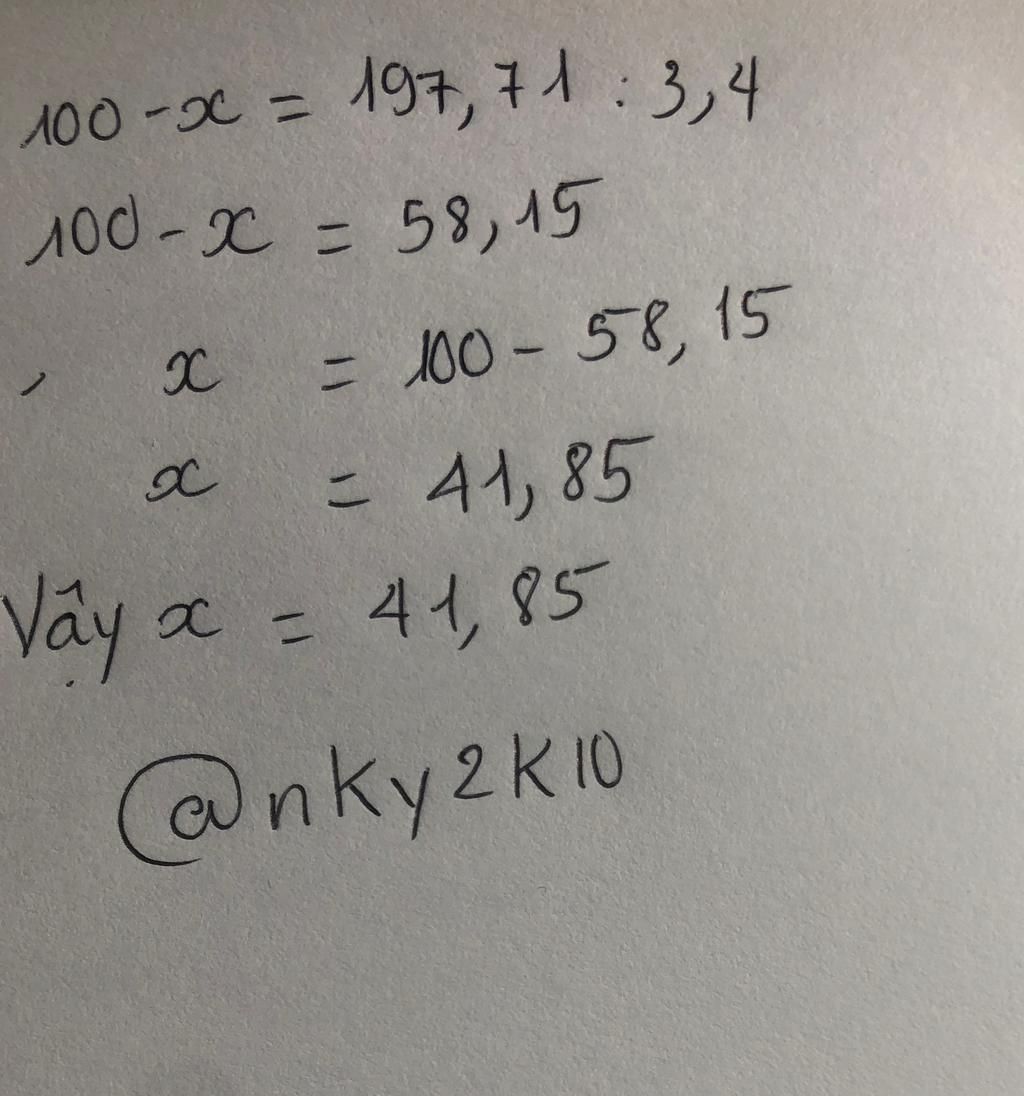 100 - x = 197,71 : 3,4
100 - x = 58,15
x = 100 - 58,15
x = 41,85
Vậy x = 41,85
@nky2k10